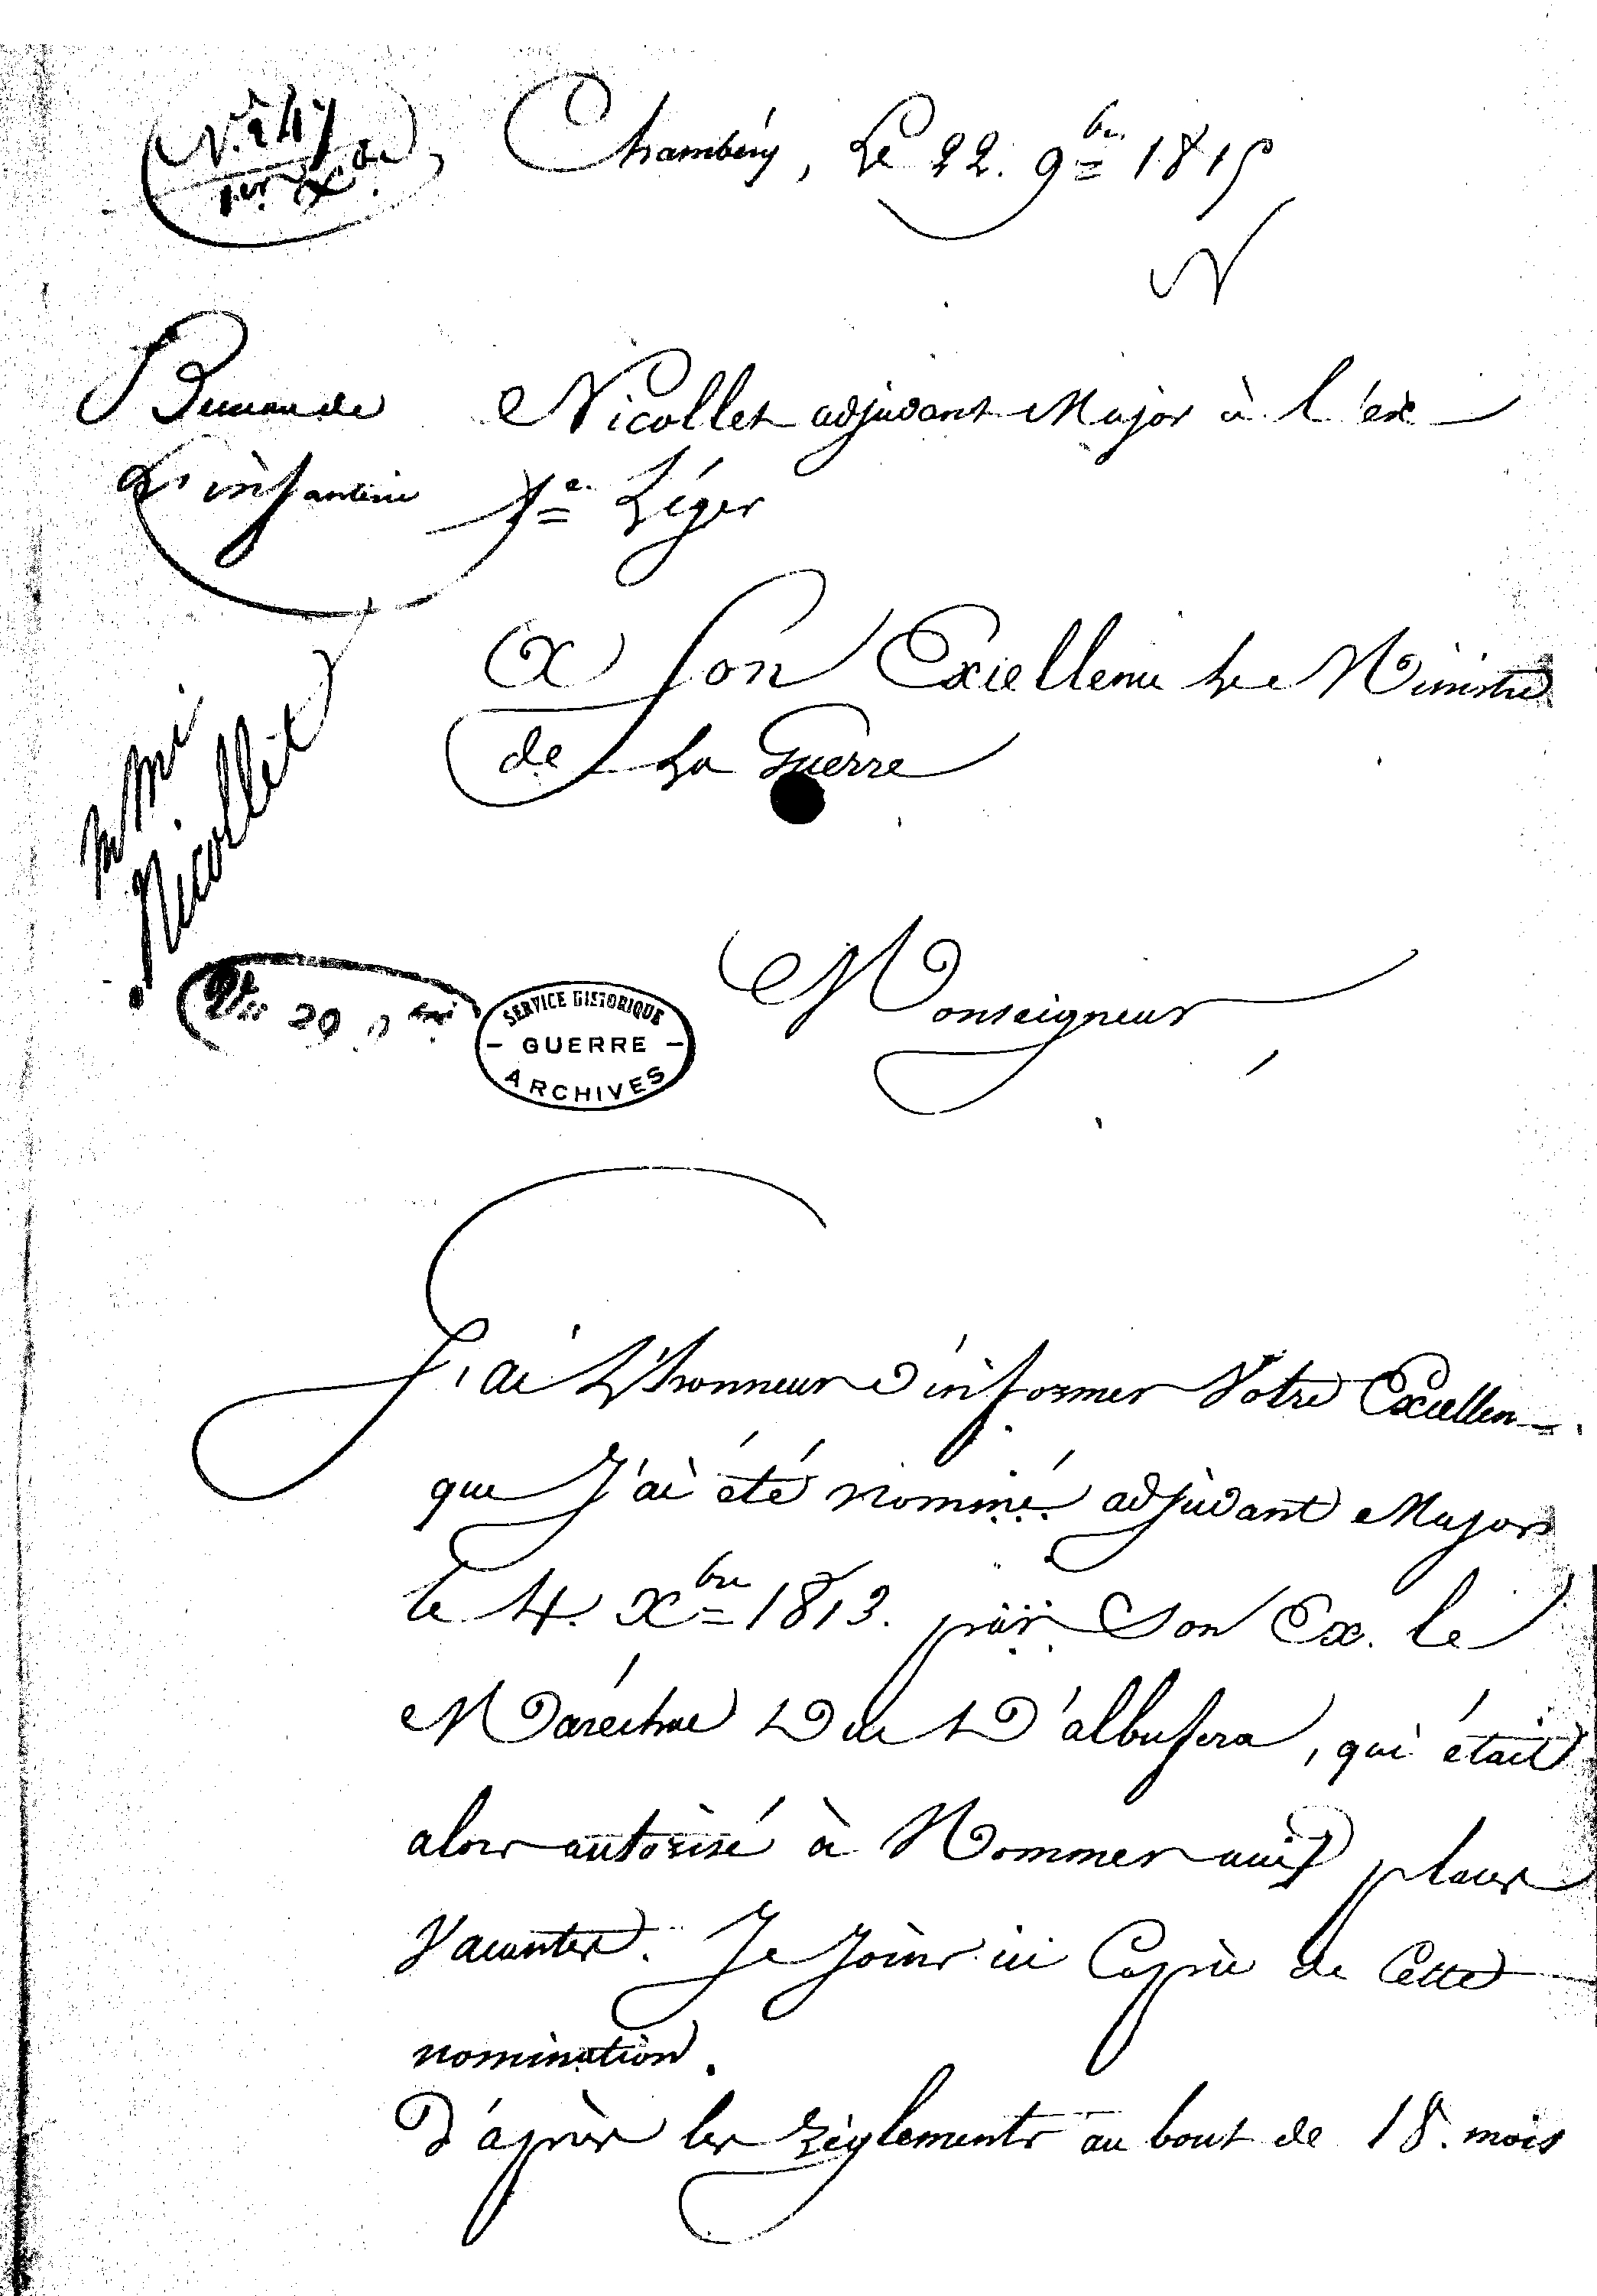 N.° 247
Chambéry, Le 22. 9bre 1815
N
Bureau de
L'infanterie
Nicollet adjudant Major à l'ex
7e Léger
A Son Excellence Le Ministre
de La Guerre
Nicollet
29
SERVICE HISTORIQUE
- GUERRE -
ARCHIVES
Monseigneur
J'ai L'honneur d'informer Votre Excellen
que J'ai été nommé adjudant Major
le 4. Xbre 1813. par Son Ex. le
Maréchal Duc D'albufera, qui était
alors autorisé à Nommer aux places
Vacantes. Je Joins ici Copie de Cette
nomination.
D'après les règlements au bout de 18. mois